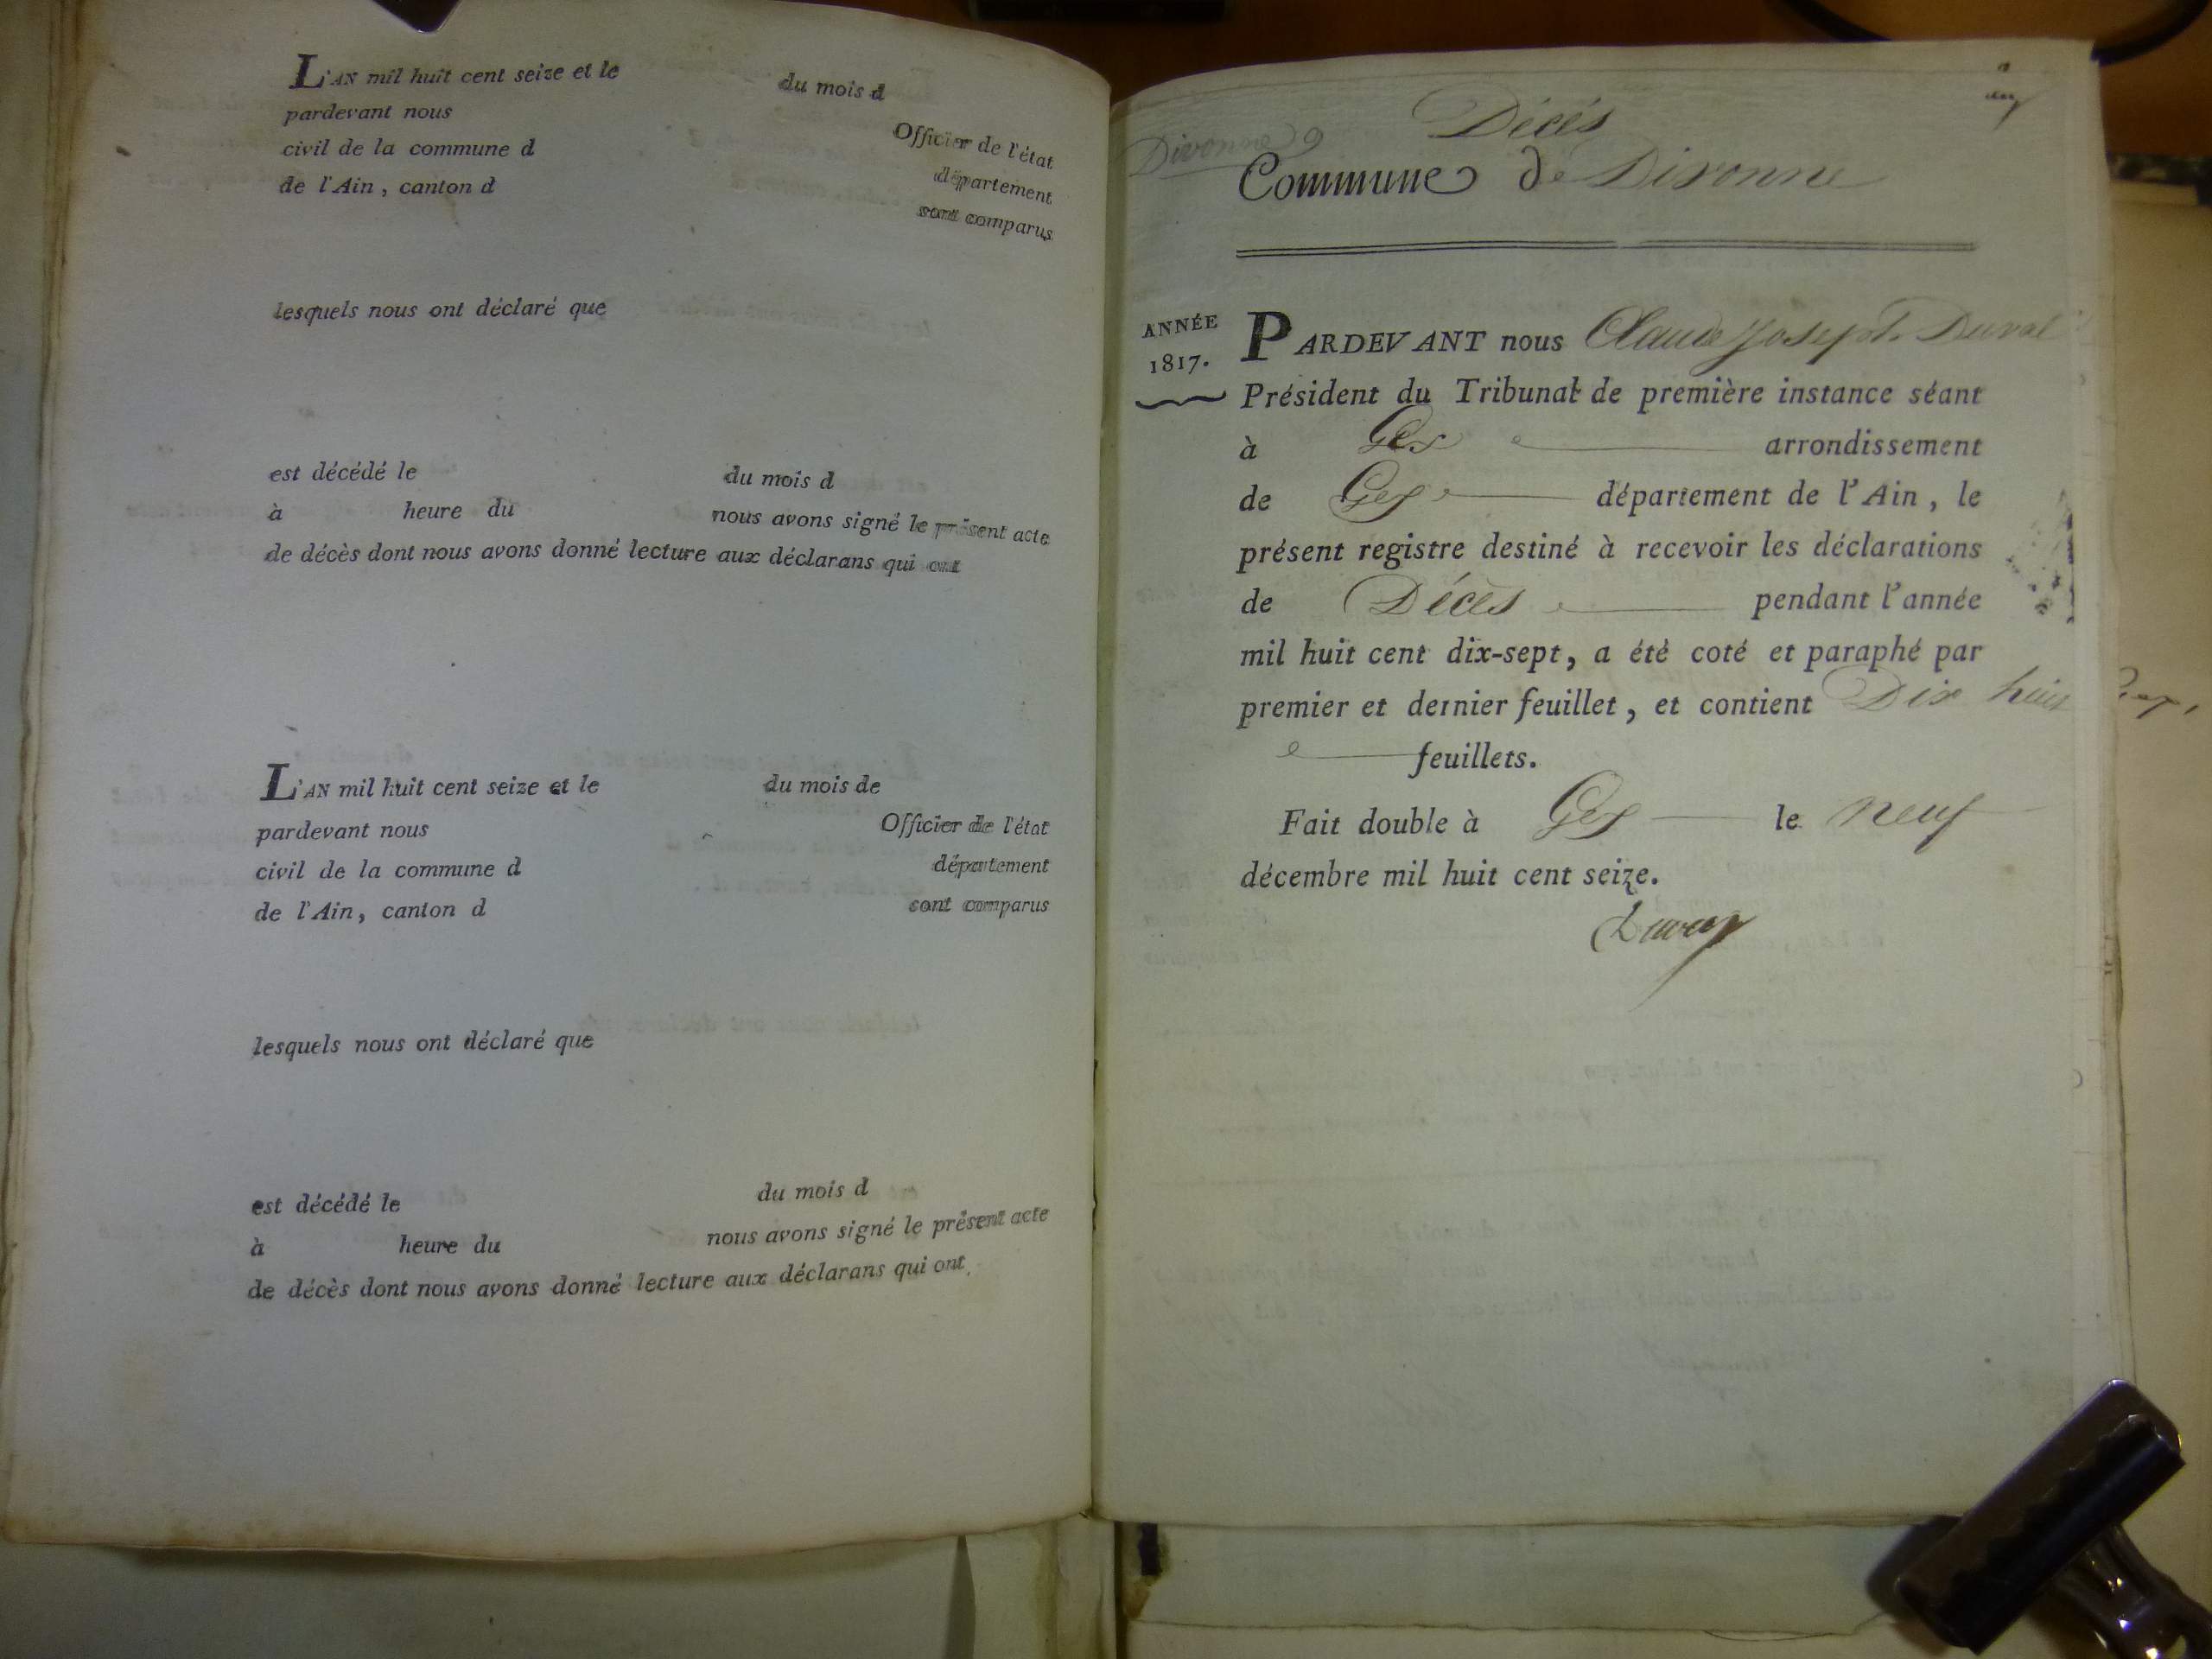 L'AN mil huit cent seize et le du mois d
pardevant nous Officier de l'état
civil de la commune d département
de l'Ain, canton d sont comparus
lesquels nous ont déclaré que
est décédé le du mois d
à heure du nous avons signé le présent acte
de décès dont nous avons donné lecture aux déclarans qui ont
L'AN mil huit cent seize et le du mois de
pardevant nous Officier de l'état
civil de la commune d département
de l'Ain, canton d sont comparus
lesquels nous ont déclaré que
est décédé le du mois d
à heure du nous avons signé le présent acte
de décès dont nous avons donné lecture aux déclarans qui ont
Décés
Divonne
Commune de Divonne
ANNÉE
1817.
PARDEVANT nous Claude Joseph Duval
Président du Tribunal de première instance séant
à Gex arrondissement
de Gex département de l'Ain, le
présent registre destiné à recevoir les déclarations
de Décès pendant l'année
mil huit cent dix-sept, a étè coté et paraphé par
premier et dernier feuillet, et contient Dix huit
feuillets.
Fait double à Gex le neuf
décembre mil huit cent seize.
Duval